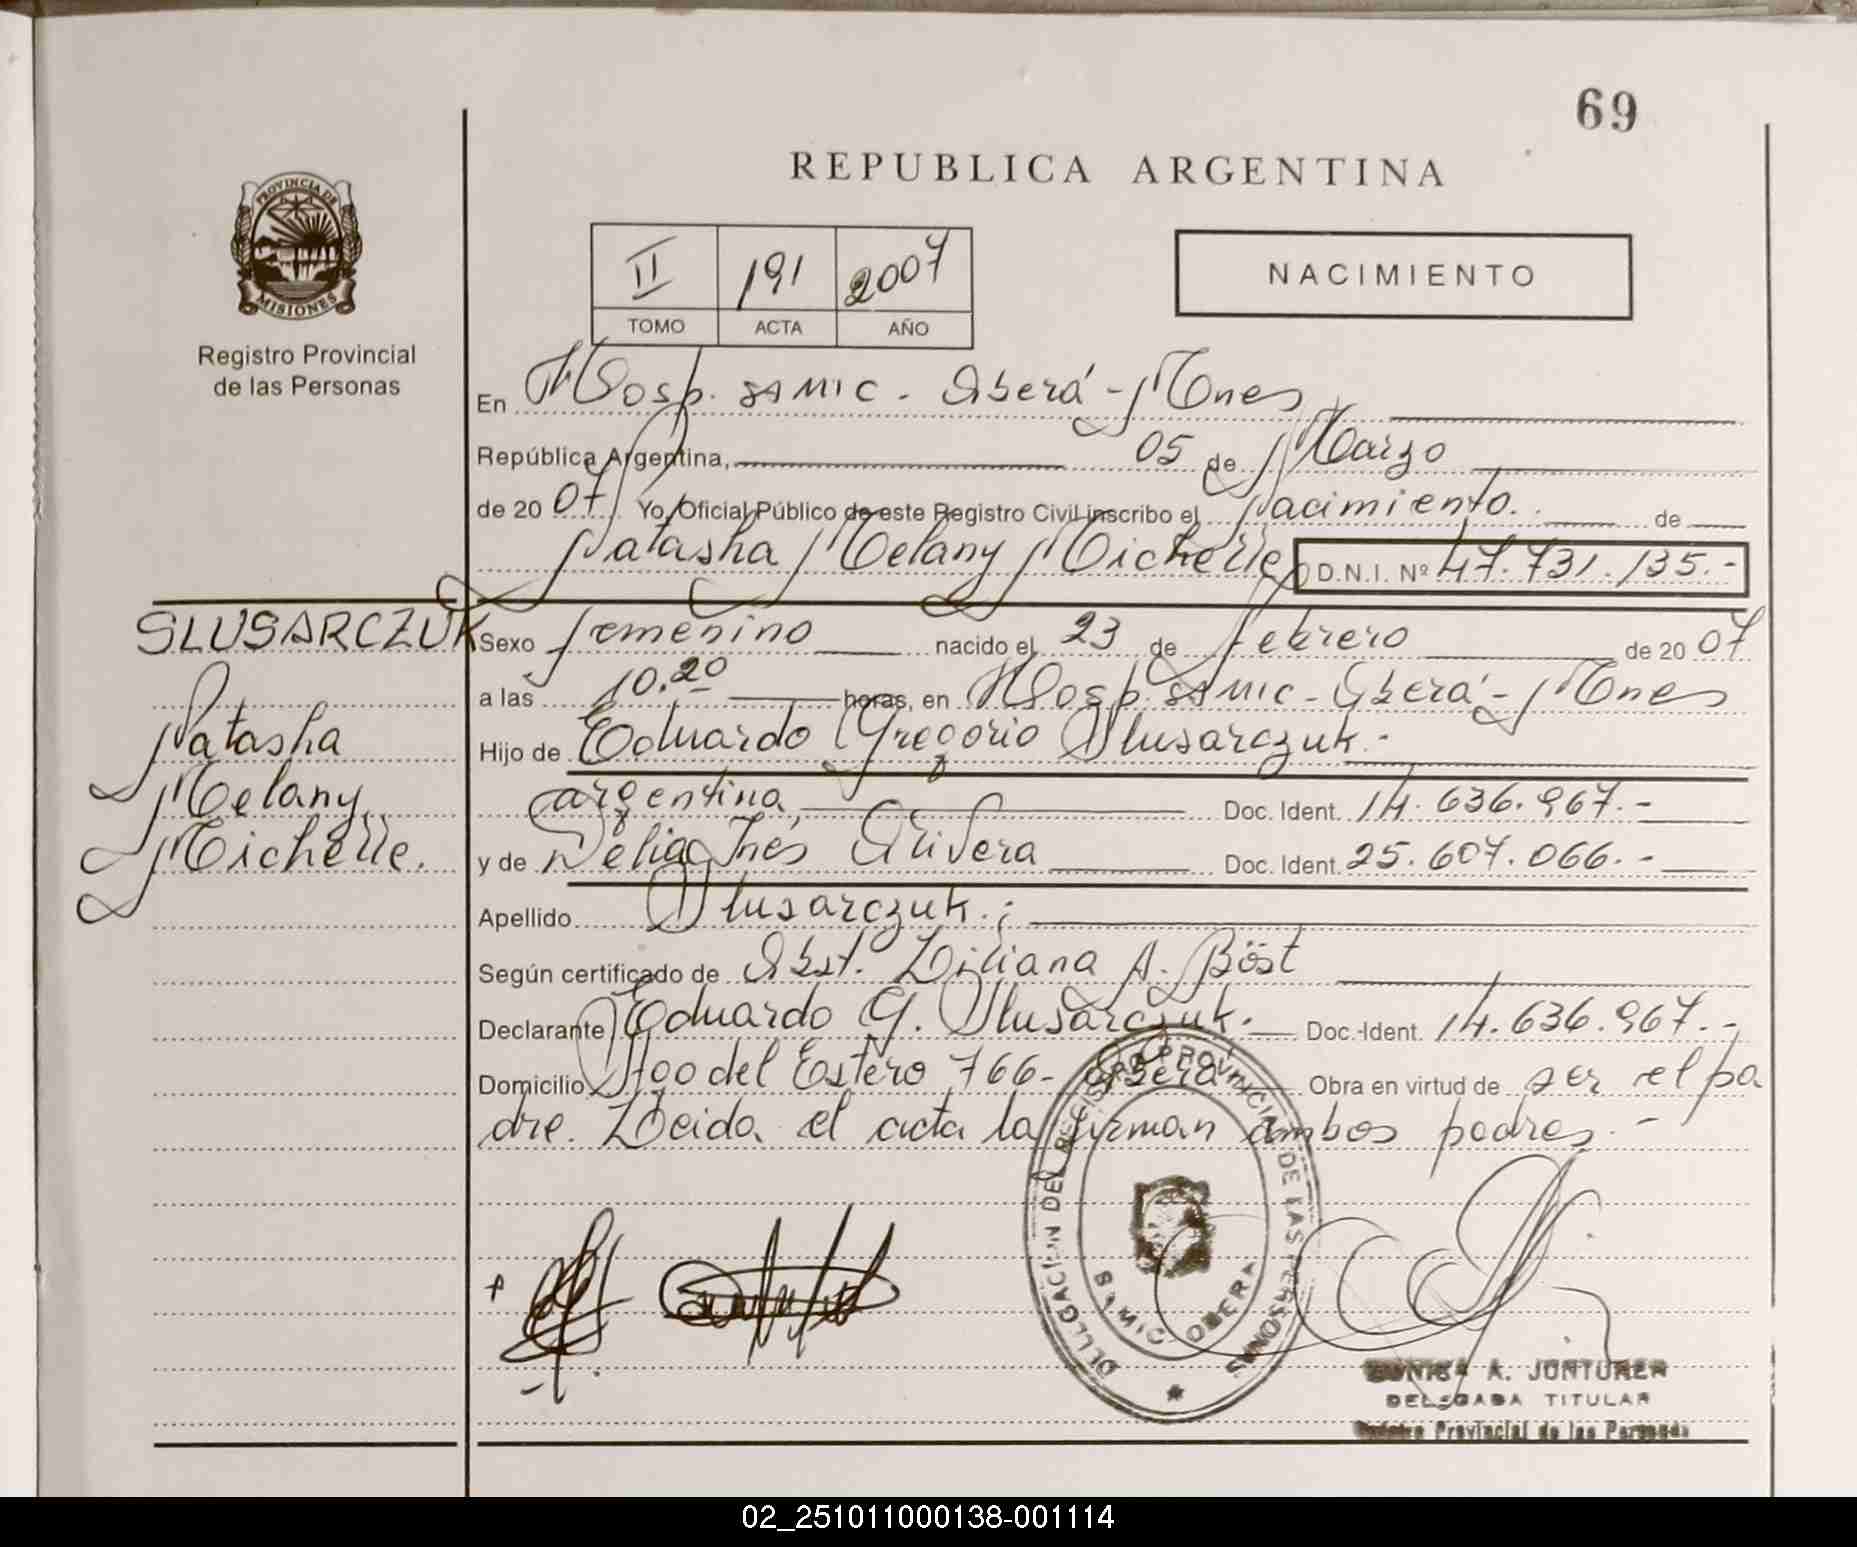 69
REPUBLICA ARGENTINA
PROVINCIA DE
MISIONES
Registro Provincial
de las Personas
II 191 2007
TOMO ACTA AÑO
NACIMIENTO
En Hosp. SAMIC - Oberá - Mnes
República Argentina, 05 de Marzo
de 2007 Yo, Oficial Público de este Registro Civil inscribo el Nacimiento. de
Natasha Melany Michelle D.N.I. Nº 47.731.135.-
SLUSARCZUK
Natasha
Melany
Michelle.
Sexo femenino nacido el 23 de febrero de 2007
a las 10.20 horas, en Hosp. SAMIC - Oberá - Mnes
Hijo de Eduardo Gregorio Slusarczuk.-
argentina, Doc. Ident. 14.636.967.-
y de Delia Inés Olivera Doc. Ident. 25.607.066.-
Apellido Slusarczuk.;
Según certificado de Obst. Liliana A. Böst
Declarante Eduardo G. Slusarczuk.- Doc.-Ident. 14.636.967.-
Domicilio Stgo del Estero 766- Oberá Obra en virtud de ser el pa
dre. Leida el acta la firman ambos padres.-
DELEGACION DEL REGISTRO PROVINCIAL DE LAS PERSONAS
SAMIC OBERA
A. JONTUREK
DELEGADA TITULAR
Registro Provincial de las Personas
02_251011000138-001114